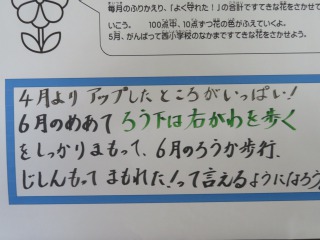 毎月のふりかえり、「よく守れた！」の合計ですてきな花をさかせて
いこう。 100点中、10点ずつ花の色がふえていくよ。
5月、がんばって西小学校のなかまですてきな花をさかせよう。
4月より アップしたところがいっぱい！
6月のめあて ろう下は右がわを歩く
をしっかりまもって、6月のろうか歩行、
じしんもって まもれた！って言えるようになろう